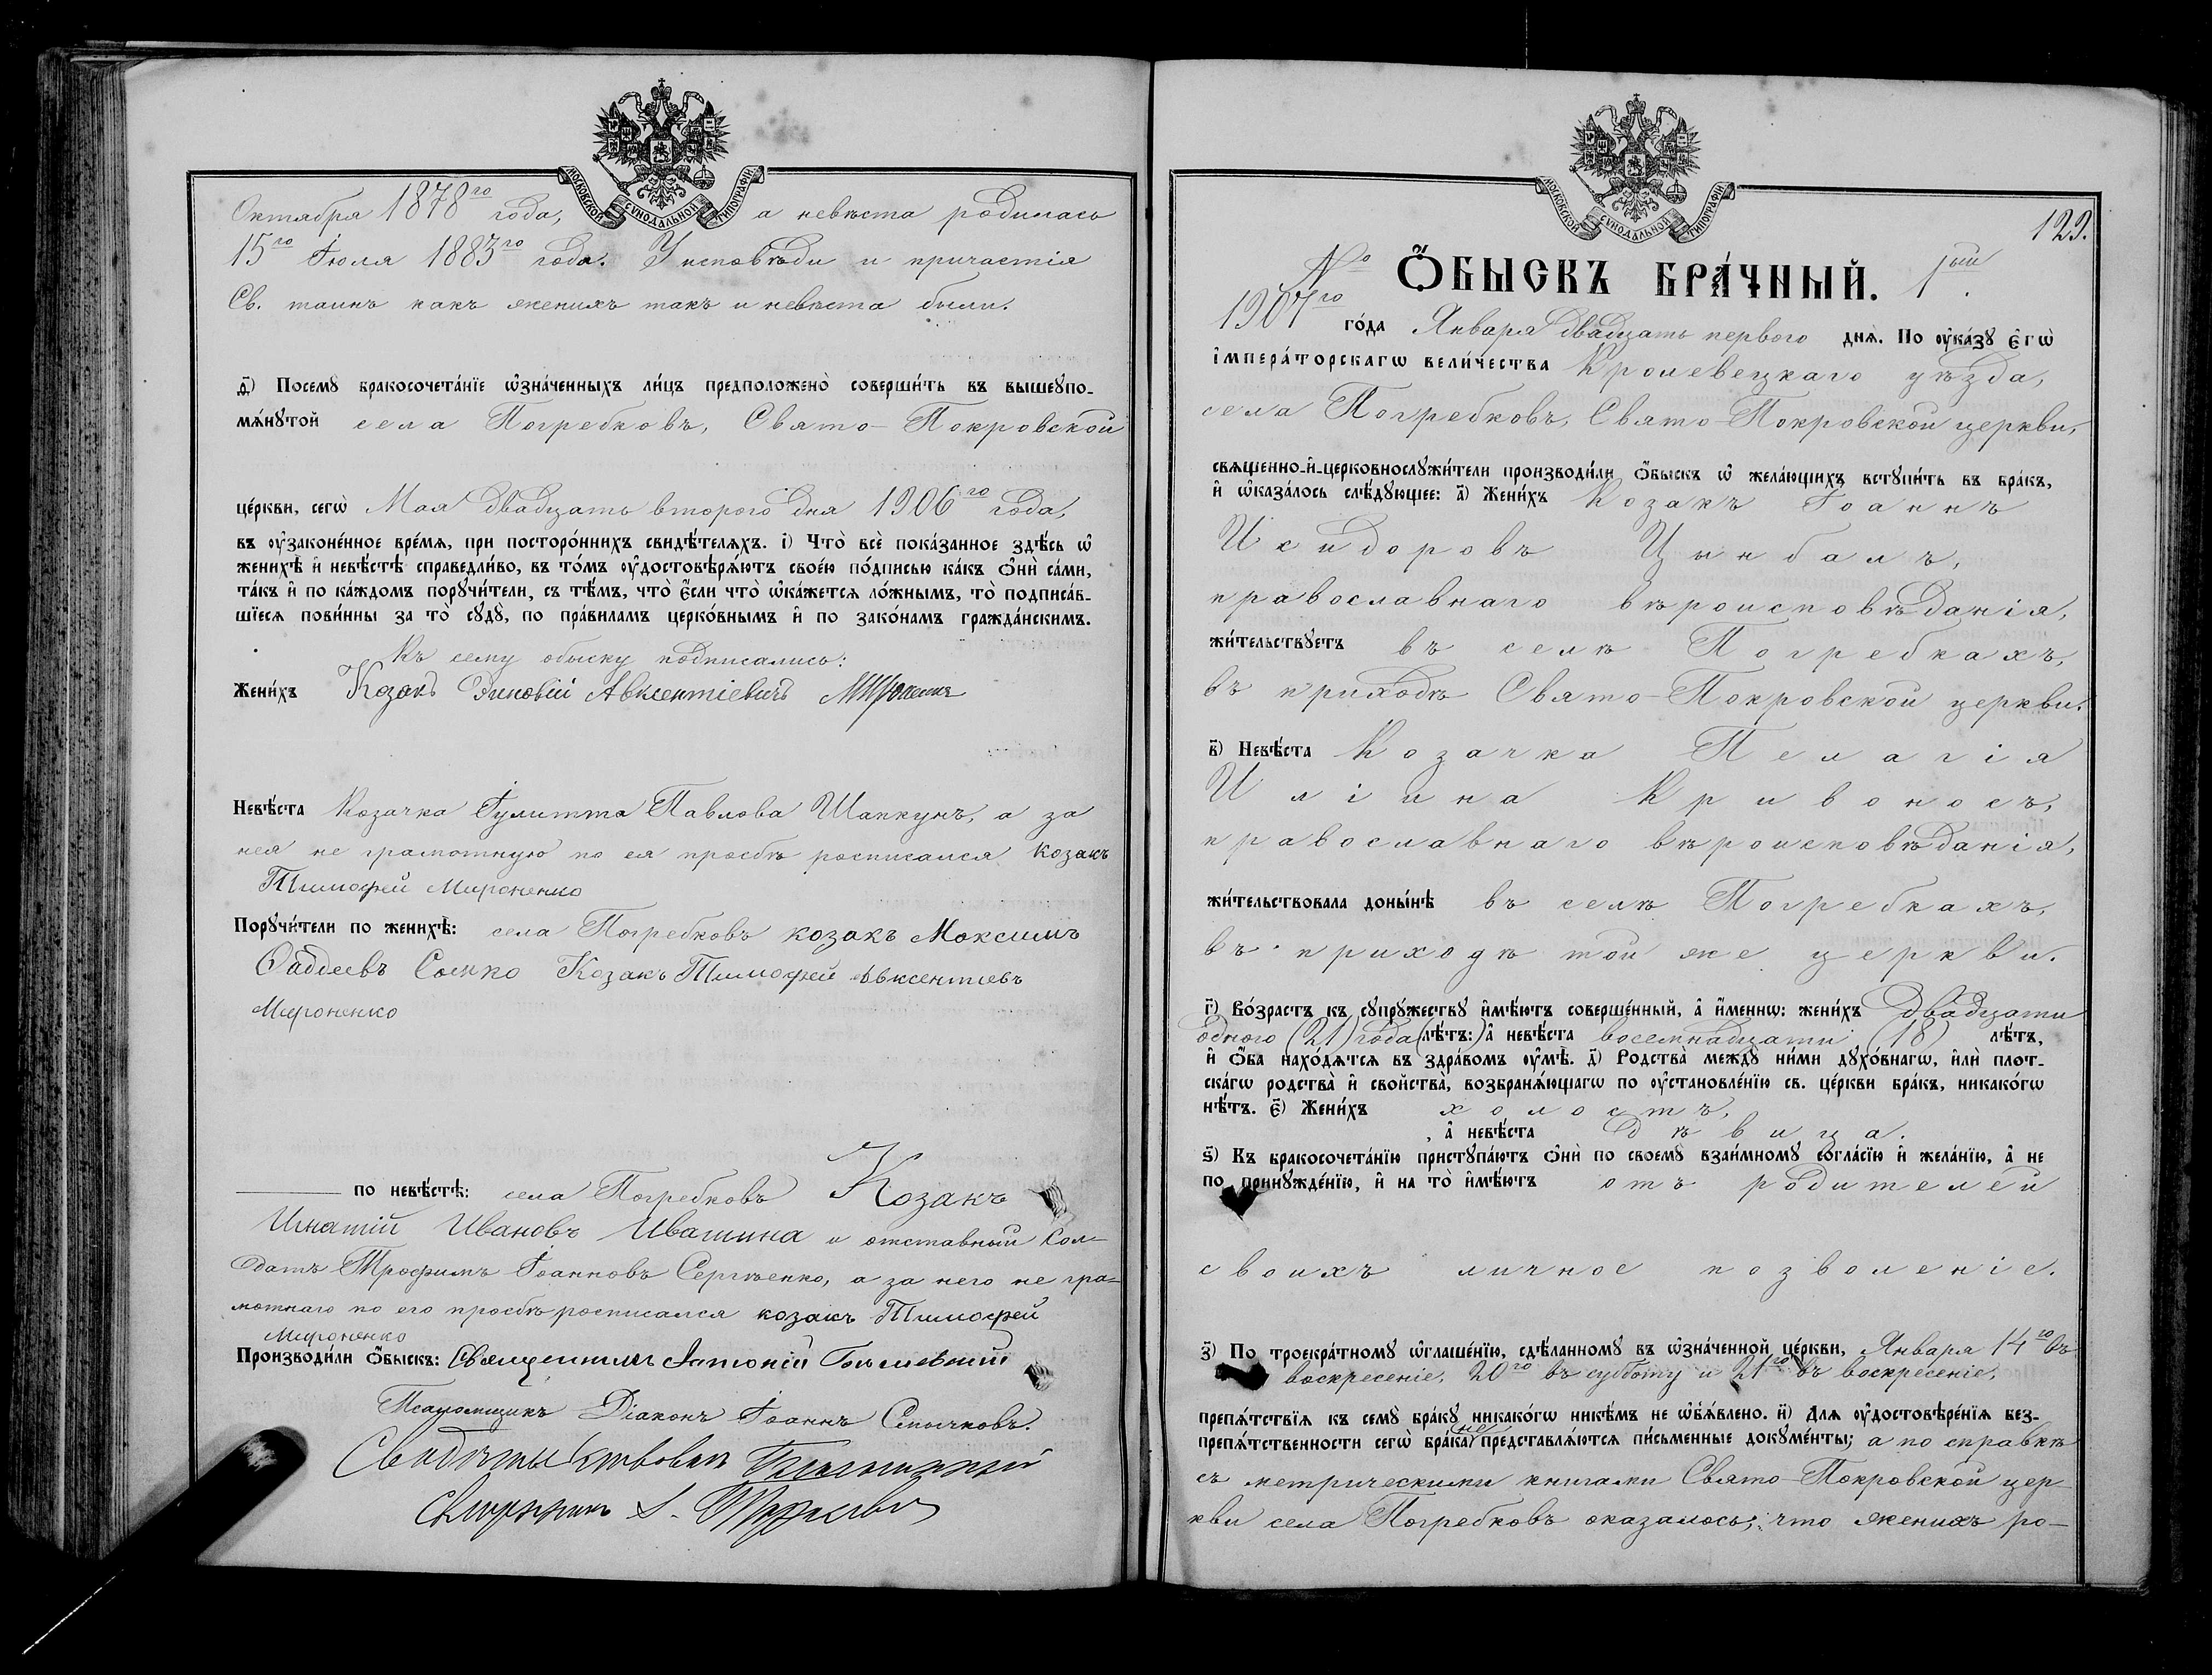 МОСКОВСКОЙ СѴНОДАЛЬНОЙ ТИПОГРАФІИ
Октября 1878го года, а невѣста родилась
15го Іюля 1883го года. У исповѣди и причастія
Св. таинъ какъ женихъ такъ и невѣста были.
ѳ҃) Посемꙋ бракосочета́нїе ѡ҆зна́ченныхъ ли́цъ предположено̀ соверши́ть въ вышеꙋпо-
мѧ́нꙋтой села Погребковъ, Свято-Покровской
це́ркви, сегѡ̀ Мая двадцать второго дня 1906го года,
въ ᲂу҆зако́ненное вре́мѧ, при посторо́ннихъ свидѣ́телѧхъ. і҃) Что̀ всѐ пока́занное здѣ́сь ѡ҆
женихѣ̀ и҆ невѣ́стѣ справедли́во, въ то́мъ ᲂу҆достовѣрѧ́ютъ свое́ю по́дписью ка́къ ѻ҆нѝ са́ми,
та́къ и҆ по ка́ждомъ порꙋчи́тели, съ тѣ́мъ, что̀ є҆́сли что̀ ѡ҆ка́жетсѧ ло́жнымъ, то̀ подписа́в-
шїесѧ пови́нны за то̀ сꙋдꙋ̀, по пра́виламъ церко́внымъ и҆ по зако́намъ гражда́нскимъ.
Къ сему обыску подписались:
Жени́хъ Козакъ Зиновій Авксентіевичъ
Невѣ́ста Козачка Іулитта Павлова Шапкунъ, а за
нея не грамотную по ея просьбѣ росписался козакъ
Тимофей Мироненко
Порꙋчи́тели по женихѣ̀: села Погребковъ козакъ Максимъ
Фаддеевъ Сомко Козакъ Тимофей Авксентіевъ
Мироненко
по невѣ́стѣ: села Погребковъ Козакъ
Игнатій Ивановъ Ивашина и отставной сол-
датъ Трофимъ Іоанновъ Сергѣенко, а за него не гра-
мотнаго по его просьбѣ росписался козакъ Тимофей
Мироненко
Производи́ли ѻ҆́быскъ: Священникъ Антоній
Псаломщикъ Діаконъ Іоаннъ Смычковъ.
МОСКОВСКОЙ СѴНОДАЛЬНОЙ ТИПОГРАФІИ
129.
№ Ѻ҆́БЫСКЪ БРА́ЧНЫЙ. 1ый.
1907го го́да Января двадцать первого днѧ̀. По ᲂу҆ка́зꙋ є҆гѡ̀
і҆мпера́торскагѡ вели́чества Кролевецкаго уѣзда,
села Погребковъ, Свято-Покровской церкви,
свѧще́нно-и҆-церковнослꙋжи́тели производи́ли ѻ҆́быскъ ѡ҆ жела́ющихъ встꙋпи́ть въ бра́къ,
и҆ ѡ҆каза́лось слѣ́дꙋющее: а҃) Жени́хъ Козакъ Іоаннъ
Исидоровъ Цымбалъ,
православнаго вѣроисповѣданія,
жи́тельствꙋетъ въ селѣ Погребкахъ,
въ приходѣ Свято-Покровской церкви.
в҃) Невѣ́ста Козачка Пелагія
Иліина Кривоносъ,
православнаго вѣроисповѣданія,
жи́тельствовала доны́нѣ въ селѣ Погребкахъ,
въ приходѣ той же церкви.
г҃) Во́зрастъ къ сꙋпрꙋ́жествꙋ и҆мѣ́ютъ соверше́нный, а҆ и҆́меннѡ: жени́хъ двадцати
одного (21) года (лѣ́тъ:) а҆ невѣ́ста восемнадцати (18) лѣ́тъ,
и҆ ѻ҆́ба нахо́дѧтсѧ въ здра́вомъ ᲂу҆мѣ̀. д҃) Родства̀ междꙋ̀ ни́ми дꙋхо́внагѡ, и҆лѝ плот-
ска́гѡ родства̀ и҆ сво́йства, возбранѧ́ющагѡ по ᲂу҆становле́нїю св. це́ркви бра́къ, никако́гѡ
нѣ́тъ. є҃) Жени́хъ холостъ,
, а҆ невѣ́ста дѣвица.
ѕ҃) Къ бракосочета́нїю пристꙋпа́ютъ ѻ҆нѝ по своемꙋ̀ взаи́мномꙋ согла́сїю и҆ жела́нїю, а҆ не
по принꙋжде́нїю, и҆ на то̀ и҆мѣ́ютъ отъ родителей
своихъ личное позволеніе.
з҃) По троекра́тномꙋ ѡ҆глаше́нїю, сдѣ́ланномꙋ въ ѡ҆зна́ченной це́ркви, Января 14го въ
воскресеніе, 20го въ субботу и 21го въ воскресеніе,
препѧ́тствїѧ къ семꙋ̀ бра́кꙋ никако́гѡ никѣ́мъ не ѡ҆б̾ѧ́влено. и҃) Длѧ ᲂу҆достовѣре́нїѧ без-
препѧ́тственности сегѡ̀ бра́ка не представлѧ́ютсѧ пи́сьменные докꙋме́нты; а по справкѣ
съ метрическими книгами Свято-Покровской цер-
кви села Погребковъ оказалось, что женихъ ро-